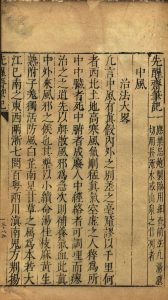 先醒齋筆記
中風
治法大畧
凡言中風有真假內外之別差之毫釐謬以千里何
者西北土地高寒風氣剛猛真氣空虛之人猝為所
中中臟者死中腑者成廢人中經絡者可調理而瘳
治之之道先以解散風邪為急次則補養氣血此真
中外來風邪之候也其藥以小續命湯桂枝麻黃生
熟附子羌獨活防風白芷南星甘草之屬為本若大
江已南之東西兩浙七閩百粵兩川滇南鬼方荊揚